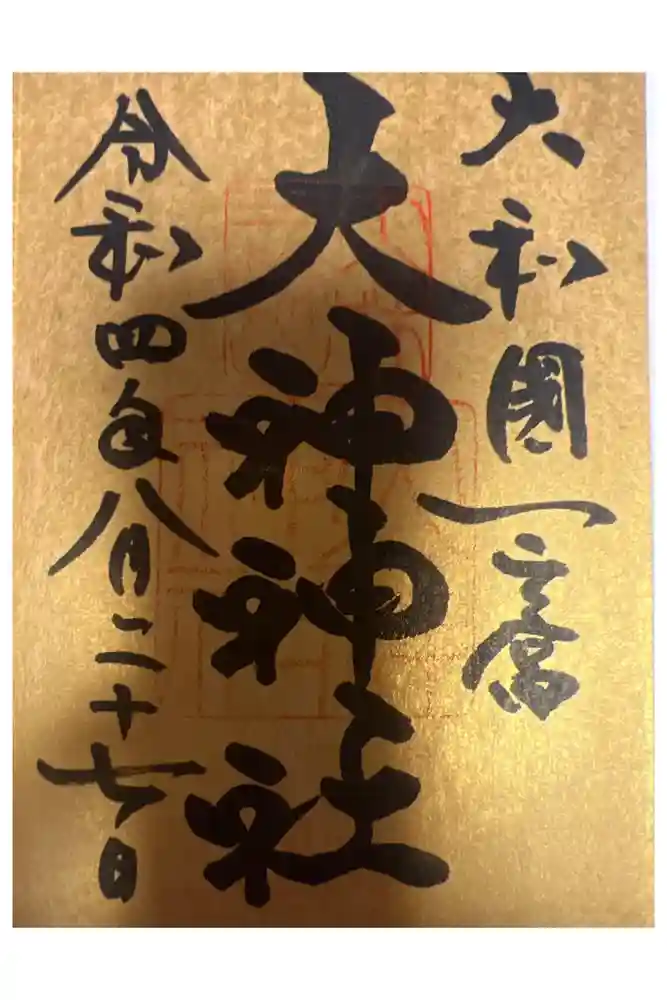 大和國一宮
大神神社
令和四年八月二十七日